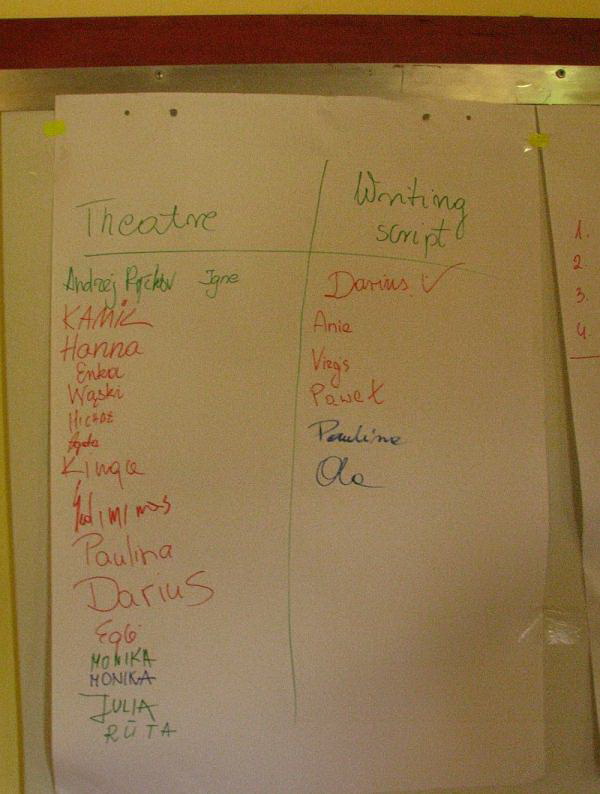 Theatre
Andrzej Igne
KAMIL
Hanna
Enka
Wąski
MICHAŁ
Kinga
Paulina
Darius
Eglė
MONIKA
MONIKA
JULIA
RŪTA
Writing
script
Darius. V
Ania
Virgis
Paweł
Paulina
Ola
1.
2.
3.
4.